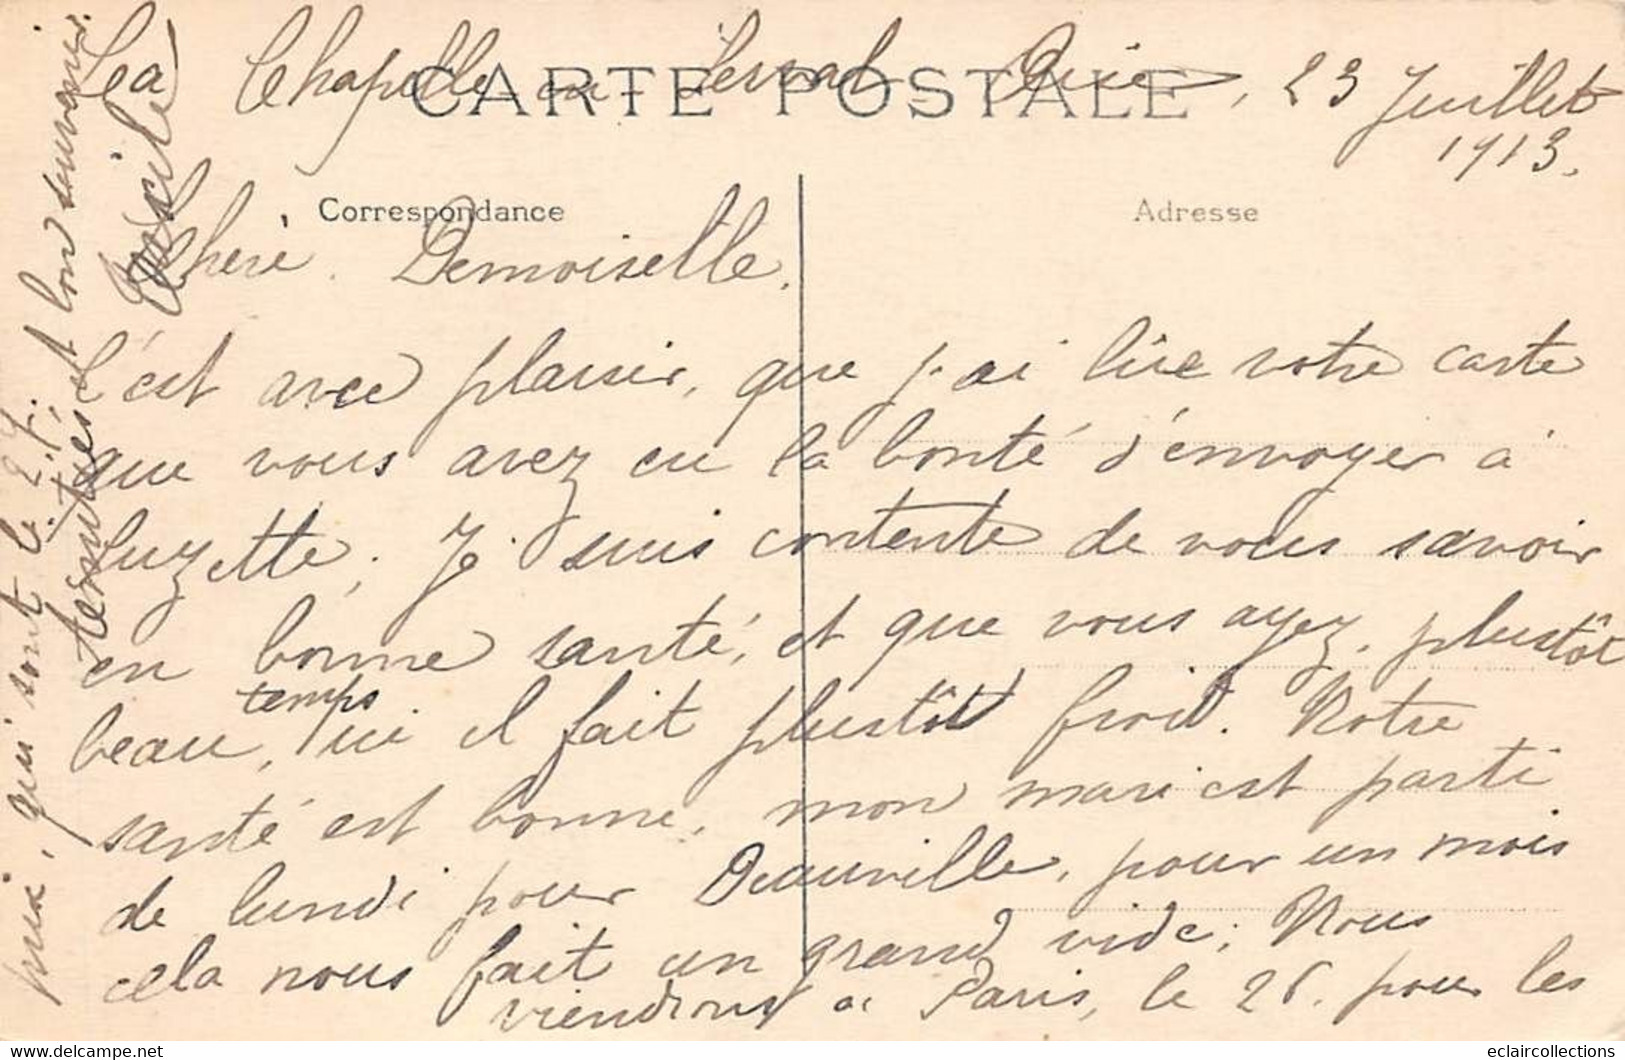 La Chapelle en Serval Oise, 23 Juillet
1913.
CARTE POSTALE
Correspondance
Adresse
Chère Demoiselle,
C'est avec plaisir, que j'ai lue votre carte
que vous avez eu la bonté d'envoyer à
Suzette, Je suis contente de vous savoir
en bonne santé, et que vous ayez, plustôt
beau temps, ici il fait plustôt froid. Notre
santé est bonne, mon mari est parti
de lundi pour Deauville, pour un mois
cela nous fait un grand vide; Nous
viendrons a Paris, le 28. pour les
prix, qui sont le 29.
Amitiés et bon souvenir
eclaircollections@yahoo.fr
eclaircollections